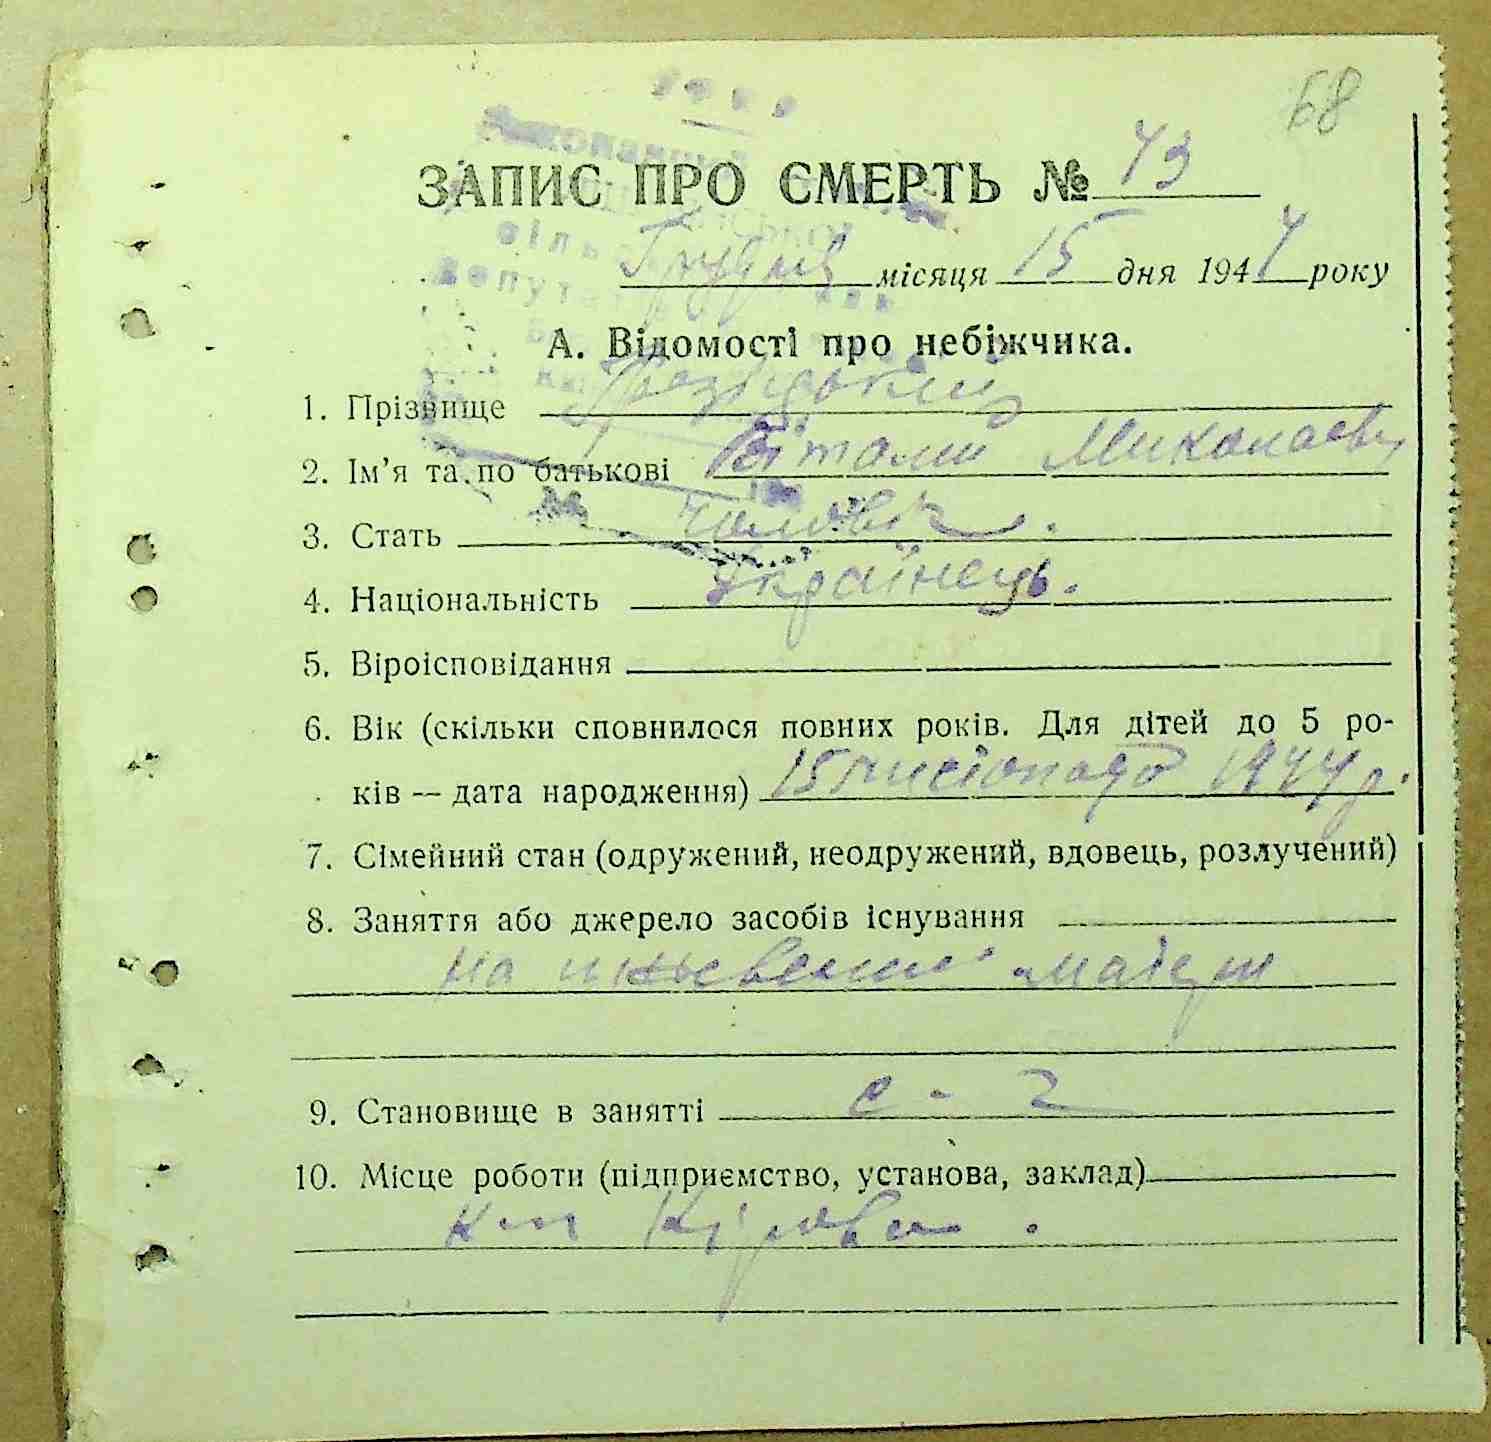 68
ЗАПИС ПРО СМЕРТЬ № 43
Грудня місяця 15 дня 1944 року
А. Відомості про небіжчика.
1. Прізвище
2. Ім'я та по батькові Віталій Миколаєвич
3. Стать чоловік.
4. Національність Українець.
5. Віроісповідання
6. Вік (скільки сповнилося повних років. Для дітей до 5 ро-
ків — дата народження) 15 листопада 1944 р.
7. Сімейний стан (одружений, неодружений, вдовець, розлучений)
8. Заняття або джерело засобів існування
на матери
9. Становище в занятті с - г
10. Місце роботи (підприємство, установа, заклад)
к-п Кірова.